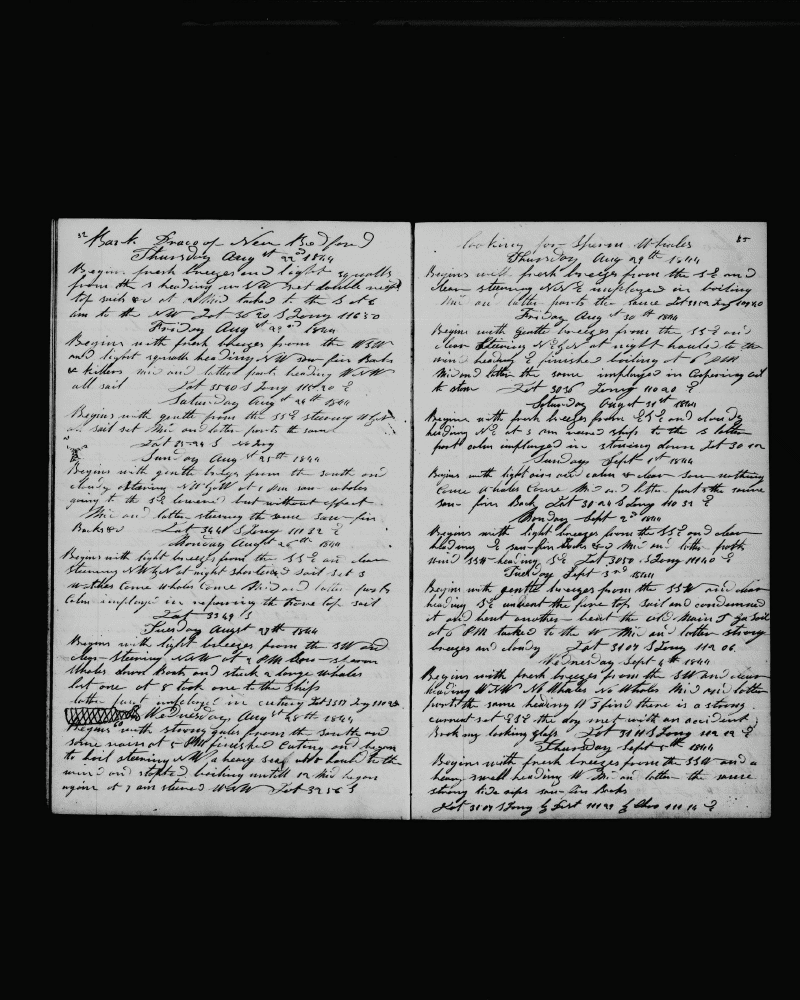 Bark Draco of New Bedford
Thursday Aug st 22nd 1844
Begins fresh breezes and light squalls
from the S heading W
top sails &c at 2 Mid tacked to the S at 6
am to the NW Lat 36 20 S Long 116 30
Friday Aug st 23rd 1844
Begins with fresh breezes from the WSW
and light squalls heading NW saw fin Backs
& killers mid and latter part heading WNW
all sail Lat 35 50 S Long E
Saturday Augst 24th 1844
Begins with gentle from the SSE steering
all sail set Mid and latter parts the same
Lat 35-24 S No Long
Sunday Aug st 25th 1844
Begins with gentle breezes from the south and
cloudy steering NW at 1 Pm saw whales
going to the SE lowered but without effect
Mid and latter steering the same saw fin
Backs &c Lat 34 41 S Long 111 32 E
Monday Augst 26th 1844
Begins with light breezes from the SSE and clear
steering NWbN at night shortened sail set 3
watches Come whales Come Mid and latter parts
Calm imployed in repairing the Fore top sail
Lat 33 49 S
Tuesday Augst 27th 1844
Begins with light breezes from the SW and
clear steering NNW at 2 PM saw sperm
Whales down Boats and stuck 2 large whales
lost one at 8 took one to the ship
latter part imployed in cuting Lat 33 17 Long
Wednesday Aug st 28th 1844
Begins with strong gales from the south and
some rain at 5 PM finished Cuting and began
to boil steering NW a heavy sea at 8 hauld to the
wind and stopted boiling untill 12 Mid began
again at 7 am steered WNW Lat 32 56 S
looking for Sperm Whales 85
Thursday Aug 29th 1844
Begins with fresh breezes from the SE and
clear steering NNE imployed in boiling
Mid and latter parts the same Lat Long
Friday Aug st 30th 1844
Begins with gentle breezes from the SSE and
clear Steering at night hauled to the
wind heading E finished boiling at 6 PM
Mid and latter the same imployed in Coopering oil
to stow Lat 30 36 Long 110 20 E
Saturday Augst 31st 1844
Begins with fresh breezes from ESE and cloudy
heading NE at 3 am wore ship to the S latter
part calm imployed in stowing down Lat 30
Sunday Sept 1st 1844
Begins with light airs and calm & clear saw nothing
Come whales Come Mid and latter part the same
saw fin Back Lat 30 24 S Long 110 32 E
Monday Sept 2nd 1844
Begins with light breezes from the SSE and clear
heading E saw fin Backs &c Mid and latter parts
wind SSW heading SE Lat 30 50 S Long 111 40 E
Tuesday Sept 3rd 1844
Begins with gentle breezes from the SSW and clear
heading SE unbent the fore top sail and condemned
it and bent another bent the old Main T Ga Sail
at 6 PM tacked to the W Mid and latter strong
breezes and cloudy Lat 31 07 S Long 112 06
Wednesday Sept 4th 1844
Begins with fresh breezes from the SW and clear
heading No Whales No Whales Mid and latter
parts the same heading W I find there is a strong
current set ESE the day met with an accident
Broke my looking glass Lat 31 11 S Long E
Thursday Sept 5th 1844
Begins with fresh breezes from the SSW and a
heavy swell heading W Mid and latter the same
strong tide rips saw fin Backs
Lat 31 07 S Long E